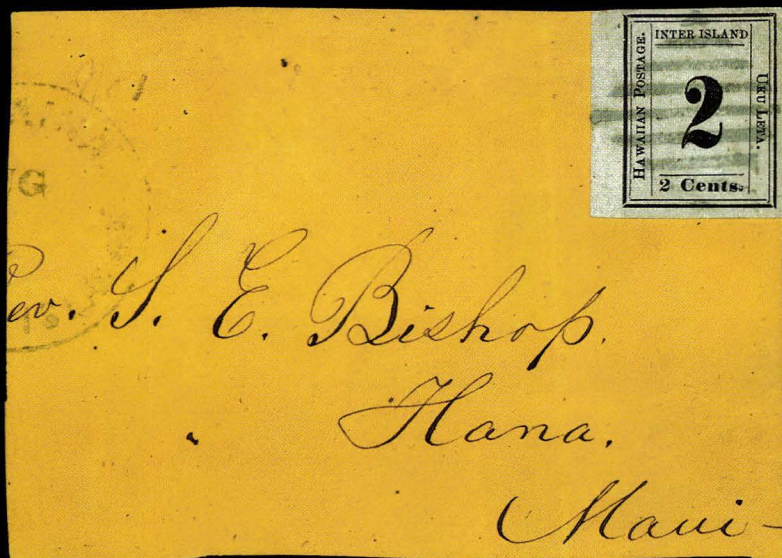 INTER ISLAND
HAWAIIAN POSTAGE.
2
UKU LETA.
2 Cents.
UG
Rev. S. E. Bishop.
Hana.
Maui-